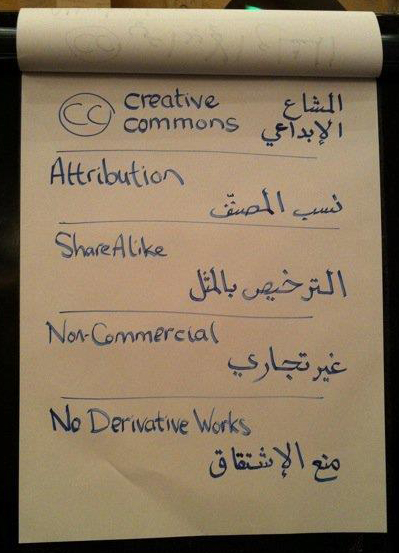 CC creative commons المشاع الإبداعي
Attribution
نسب المصنّف
ShareAlike
الترخيص بالمثل
Non-Commercial
غير تجاري
No Derivative Works
منع الإشتقاق